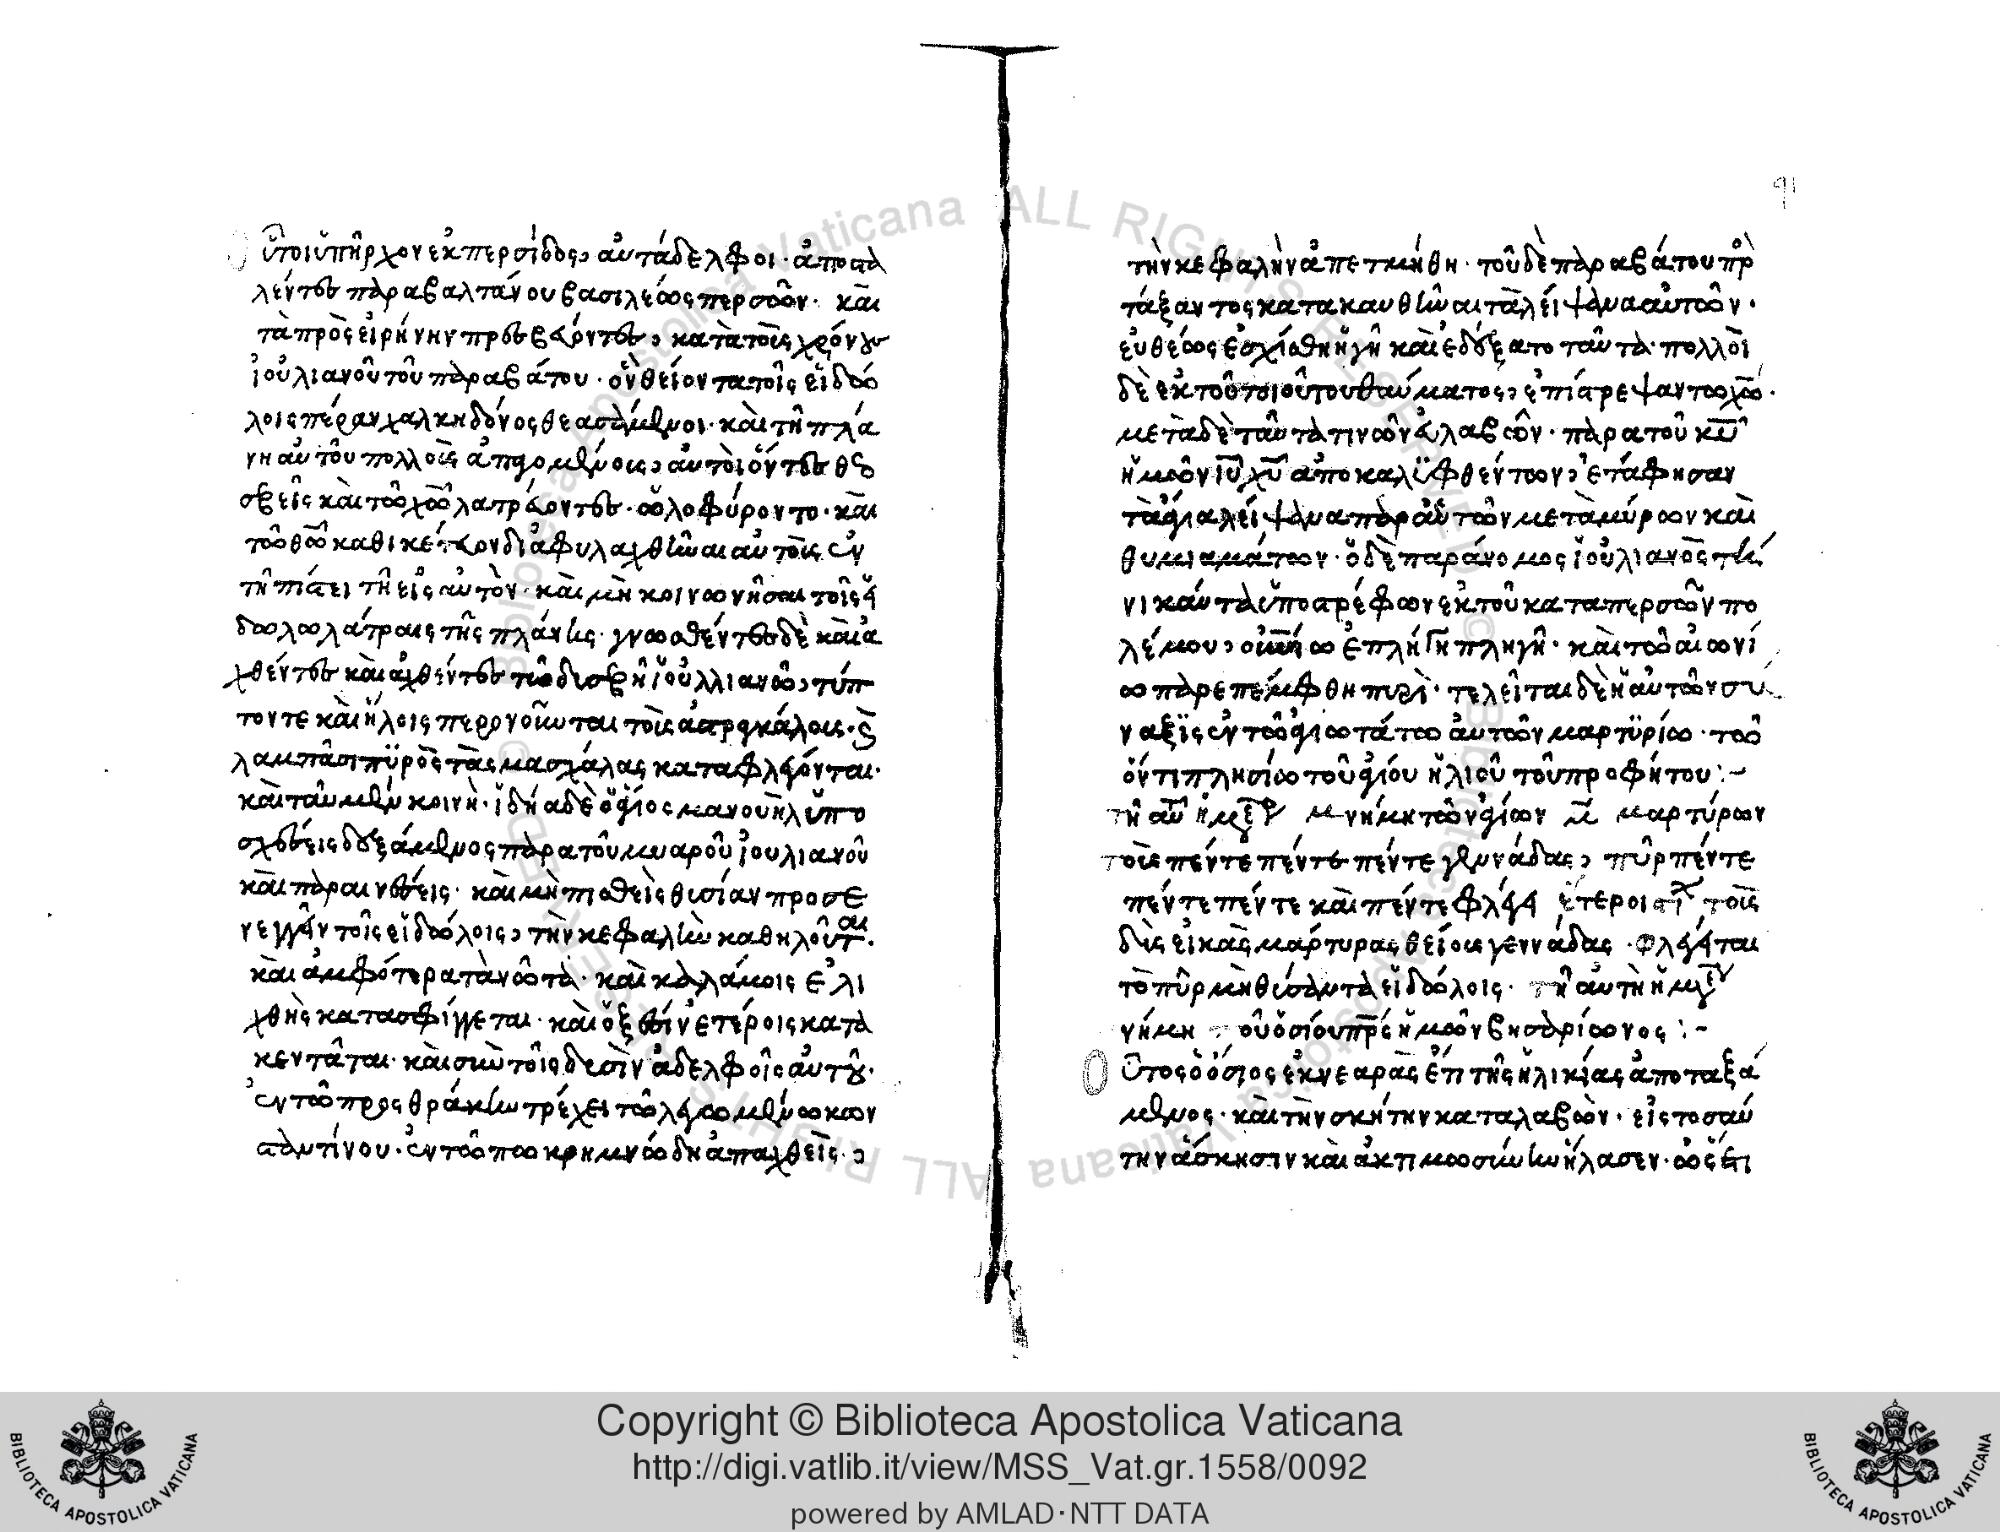 ὗτοι ὑπῆρχον ἐκ περσίδος, αὐτάδελφοι· ἀποστα
λέντες παρα βαλτάνου βασιλέως περσῶν· καὶ
τὰ πρὸς εἰρήνην πρεσβεύοντες, κατὰ τοῖς χρόνοις
ἰουλιανοῦ τοῦ παραβάτου· ὃν θείοντα τοῖς εἰδώ
λοις πέραν χαλκηδόνος θεασάμενοι· καὶ τῆ πλά
νη αὐτοῦ πολλοῖς ἀπαγομένοις, αὐτοὶ ὄντες θεο
σεβεῖς καὶ τῶ χῶ λατρεύοντες· ὠλοφύροντο· καὶ
τῶ θῶ καθικέτευον διαφυλαχθῆναι αὐτοῖς ἐν
τῆ πίστει τῆ εἰς αὐτὸν· καὶ μὴ κοινωνῆσαι τοῖς εἰ
δωλολάτραις τῆς πλάνης· γνωσθέντες δὲ καὶ ἀ
χθέντες καὶ ἀχθέντες τῶ δυσεβῆ ἰουλλιανῶ, τύπ
τονται καὶ ἥλοις περονοῦνται τοῖς ἀστραγάλοις· καὶ
λαμπᾶσι πυρὸς τὰς μασχάλας καταφλέγονται·
καὶ ταῦ μὲν κοινῆ· ἰδήα δὲ ὁ ἅγιος μανουὴλ ὑπο
σχέσεις δεξάμενος παρα τοῦ μυαροῦ ἰουλιανοῦ
καὶ παραινέσεις· καὶ μὴ πισθεὶς θυσίαν προσε
νεγγεῖν τοῖς εἰδώλοις, τὴν κεφαλὴν καθηλοῦται·
καὶ ἀμφότερα τὰ νῶτα· καὶ καλάμοις ἐλι
χθῆς κατασφίγγεται· καὶ ὀξέσιν ἑτέροις κατα
κεντᾶται· καὶ σὺν τοῖς δυσὶν ἀδελφοῖς αὐτοῦ·
ἐν τῶ προς θράκην τρέχει τῶ λεγωμένω κων
σταντίνου· ἐν τόπω κρημνώδη ἀπαχθεῖς,
91
τὴν κεφαλὴν ἀπετμήθη· τοῦ δὲ παραβάτου προσ
τάξαντος κατακαυθῆναι τὰ λείψανα αὐτῶν·
εὐθέως ἐσχίσθη ἡ γῆ καὶ ἐδέξατο ταῦτα· πολλοὶ
δὲ ἐκ τοῦ τοιούτου θαύματος, ἐπίστρεψαν τῶ χῶ·
μετὰ δὲ ταῦτα τινῶν εὐλαβῶν· παρα τοῦ κυ
ἡμῶν ἰυ χυ ἀποκαλυφθέντων, ἐτάφησαν
τὰ ἅγια λείψανα παρ αὐτῶν μετὰ μύρων καὶ
θυμιαμάτων· ὁ δὲ παράνομος ἰουλιανὸς τη
νικαῦτα ὑποστρέφων ἐκ τοῦ κατα περσῶν πο
λέμου, οὐνίω ἐπλήγη πληγῆ· καὶ τῶ αἰωνί
ω παρεπέμφθη πυρὶ· τελεῖται δὲ ἡ αὐτῶν συ
ναξις ἐν τῶ ἁγιωτάτω αὐτῶν μαρτυρίω· τῶ
ὄντι πλησίω τοῦ ἁγίου ἠλιοῦ τοῦ προφήτου :~
τῆ αὐ ἡμέρ μνήμη τῶν ἁγίων μαρτύρων
τοῖς πέντε πέντε πέντε γεννάδας, πῦρ πέντε
πέντε πέντε καὶ πέντε φλέγει ἕτεροι στίχ τοῖς
δὶς εἰκὰς μάρτυρας θείοις γεννάδας· φλέγεται
τὸ πῦρ μὴ θύσαντα εἰδώλοις· τῆ αὐτῆ ἡμέρ μ
νήμη τοῦ ὁσίου πρς ἡμῶν βησαρίωνος :~
Οὗτος ὁ ὅσιος ἐκ νεαρὰς ἔτι τῆς ἡλικίας ἀποταξά
μενος· καὶ τὴν σκήτην καταλαβὼν· εἰς τοσαύ
την ἄσκησιν καὶ ἀκτιμωσύνην ἤλασεν· ὡς ἐπι
Copyright © Biblioteca Apostolica Vaticana
http://digi.vatlib.it/view/MSS_Vat.gr.1558/0092
powered by AMLAD·NTT DATA